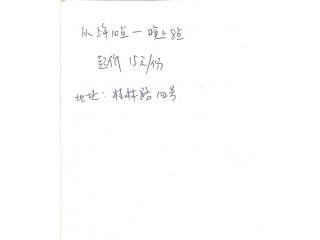 从上午10点一晚上8点
起价 15元/份
地址: 桂林路10号